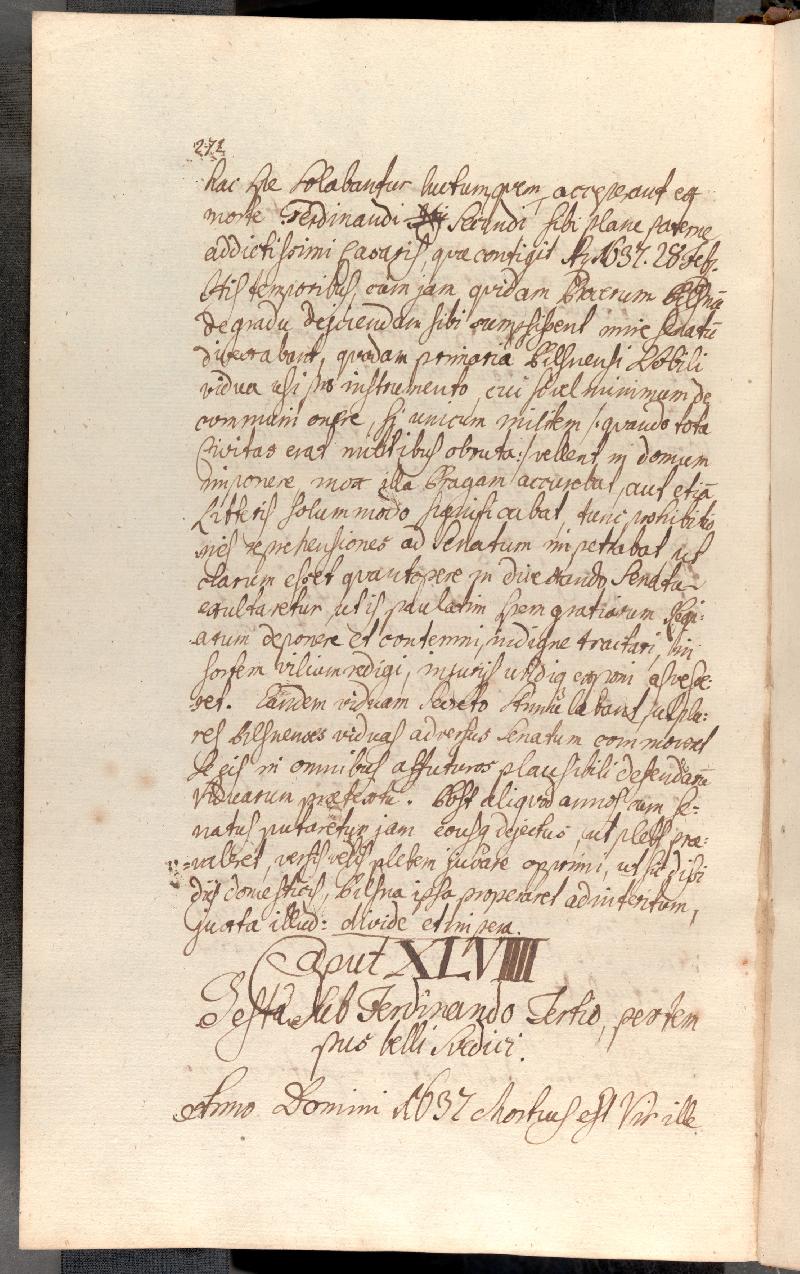 272
hac spe solabantur luctum quem acceperant ex
morte Ferdinandi Secundi sibi plane paterne
addictissimi Caesaris, quae contigit Ao 1637. 28 Feb.
His temporibus, cum jam quidam Procerum Pilsnã
de gradu dejiciendam sibi sumpsissent mire senatũ
divexabant, quadam primaria Pilsnensi Nobili
vidua usi pro instrumento, cui si vel minimum de
communi onere, si unicum militem /: quando tota
Civitas erat militibus obruta :/ vellent in domum
imponere, mox illa Pragam accurebat, aut etiã
Litteris solummodo significabat, tunc prohibitio
nes reprehensiones ad Senatum impetrabat, ut
clarum esset quantopere in divexando Senatu
exultaretur, ut is paulatim spem gratiarum Regi-
arum deponere et contemni, indigne tractari, in
sortem vilium redigi, injuriis undiq exponi assvesce-
ret. Eandem viduam secreto stimulabant, ut plu-
res Pilsnenses viduas adversus Senatum commoveret
se eis in omnibus affuturos plausibili defendendarũ
Viduarum praetextu. Post aliquod annos cum Se-
natus putaretur jam eousq dejectus, ut plebs prae-
valeret, versis velis plebem jubare opprimi, ut sic dissi
diis domesticis, Pilsna ipsa properaret ad interitum,
juxta illud: divide et impera.
Caput XLVIIII
Gesta sub Ferdinando Tertio, per tem
pus belli Svedici.
Anno Domini 1637 Mortuus est Vir ille